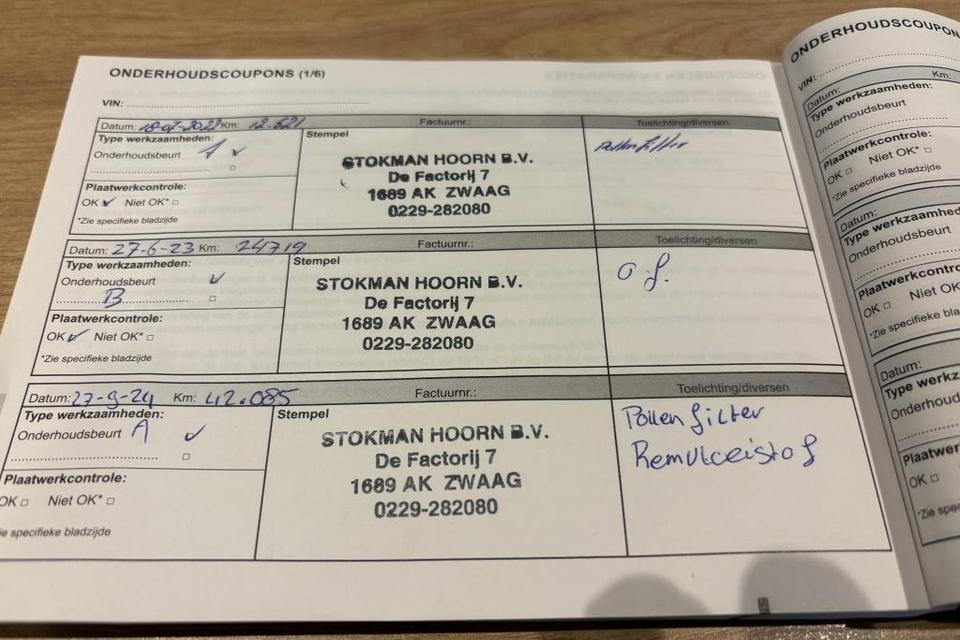 ONDERHOUDSCOUPONS (1/6)
VIN:
Datum: 18-07-2022 Km: 12.521 Factuurnr.: Toelichting/diversen
Type werkzaamheden: Stempel
Onderhoudsbeurt
STOKMAN HOORN B.V.
De Factorij 7
1689 AK ZWAAG
0229-282080
Pollenfilter
Plaatwerkcontrole:
OK Niet OK*
*Zie specifieke bladzijde
Datum: 27-6-23 Km: 24719 Factuurnr.: Toelichting/diversen
Type werkzaamheden: Stempel
Onderhoudsbeurt
B
STOKMAN HOORN B.V.
De Factorij 7
1689 AK ZWAAG
0229-282080
o f.
Plaatwerkcontrole:
OK Niet OK*
*Zie specifieke bladzijde
Datum: 27-9-24 Km: 42.085 Factuurnr.: Toelichting/diversen
Type werkzaamheden: Stempel
Onderhoudsbeurt A
STOKMAN HOORN B.V.
De Factorij 7
1689 AK ZWAAG
0229-282080
Pollenfilter
Remvloeistof
Plaatwerkcontrole:
OK Niet OK*
specifieke bladzijde
ONDERHOUDSCOUPON
VIN:
Datum: Km:
Type werkzaamheden:
Onderhoudsbeurt
Plaatwerkcontrole:
OK Niet OK*
*Zie specifieke bladzijde
Datum:
Type werkzaamhed
Onderhoudsbeurt
Plaatwerkcontro
OK Niet OK
*Zie specifieke bla
Datum:
Type werkz
Onderhouds
Plaatwerk
OK
*Zie spe